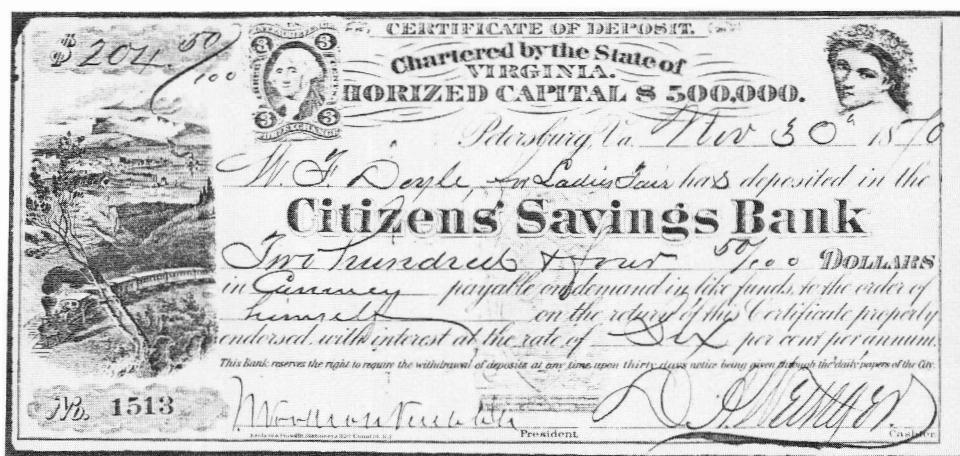 $204.50/100
CERTIFICATE OF DEPOSIT.
Chartered by the State of
VIRGINIA.
HORIZED CAPITAL $ 500,000.
3 3
3 3
Petersburg, Va. Nov 30th 1870
W. F. Doyle, for Ladies Fair has deposited in the
Citizens' Savings Bank
Two hundred & four 50/100 DOLLARS
in Currency payable on demand in like funds, to the order of
himself on the return of this Certificate properly
endorsed, with interest at the rate of Six per cent per annum.
This Bank reserves the right to require the withdrawal of deposits at any time upon thirty days notice being given through the daily papers of the City.
No. 1513
President
Cashier